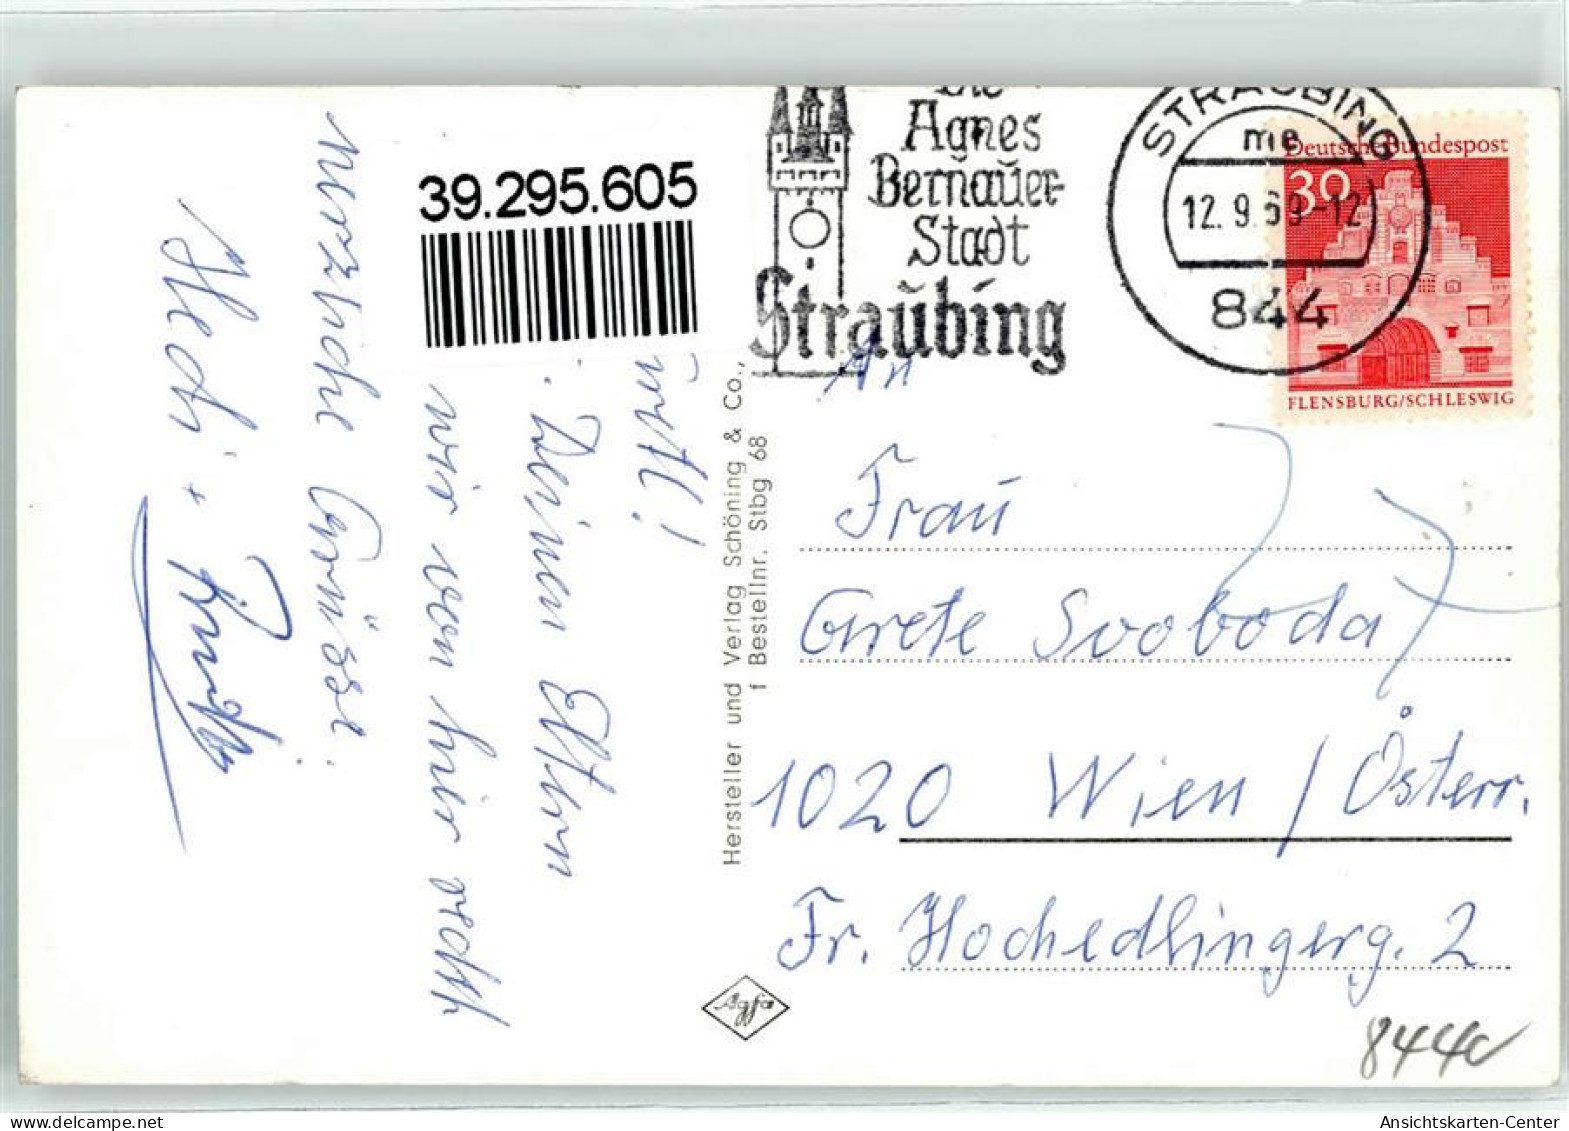 39.295.605
Die
Agnes
Bernauer-
Stadt
Straubing
STRAUBING
me
12.9.69-12
844
Deutsche Bundespost
30
FLENSBURG/SCHLESWIG
! 
Deinen Eltern
wir von hier recht
herzliche Grüsse.
Hedi +
Hersteller und Verlag Schöning & Co.,
f Bestellnr. Stbg 68
Agfa
An
Frau
Grete Svoboda
1020 Wien / Österr.
Fr. Hochedlingerg. 2
8440
Ansichtskarten-Center